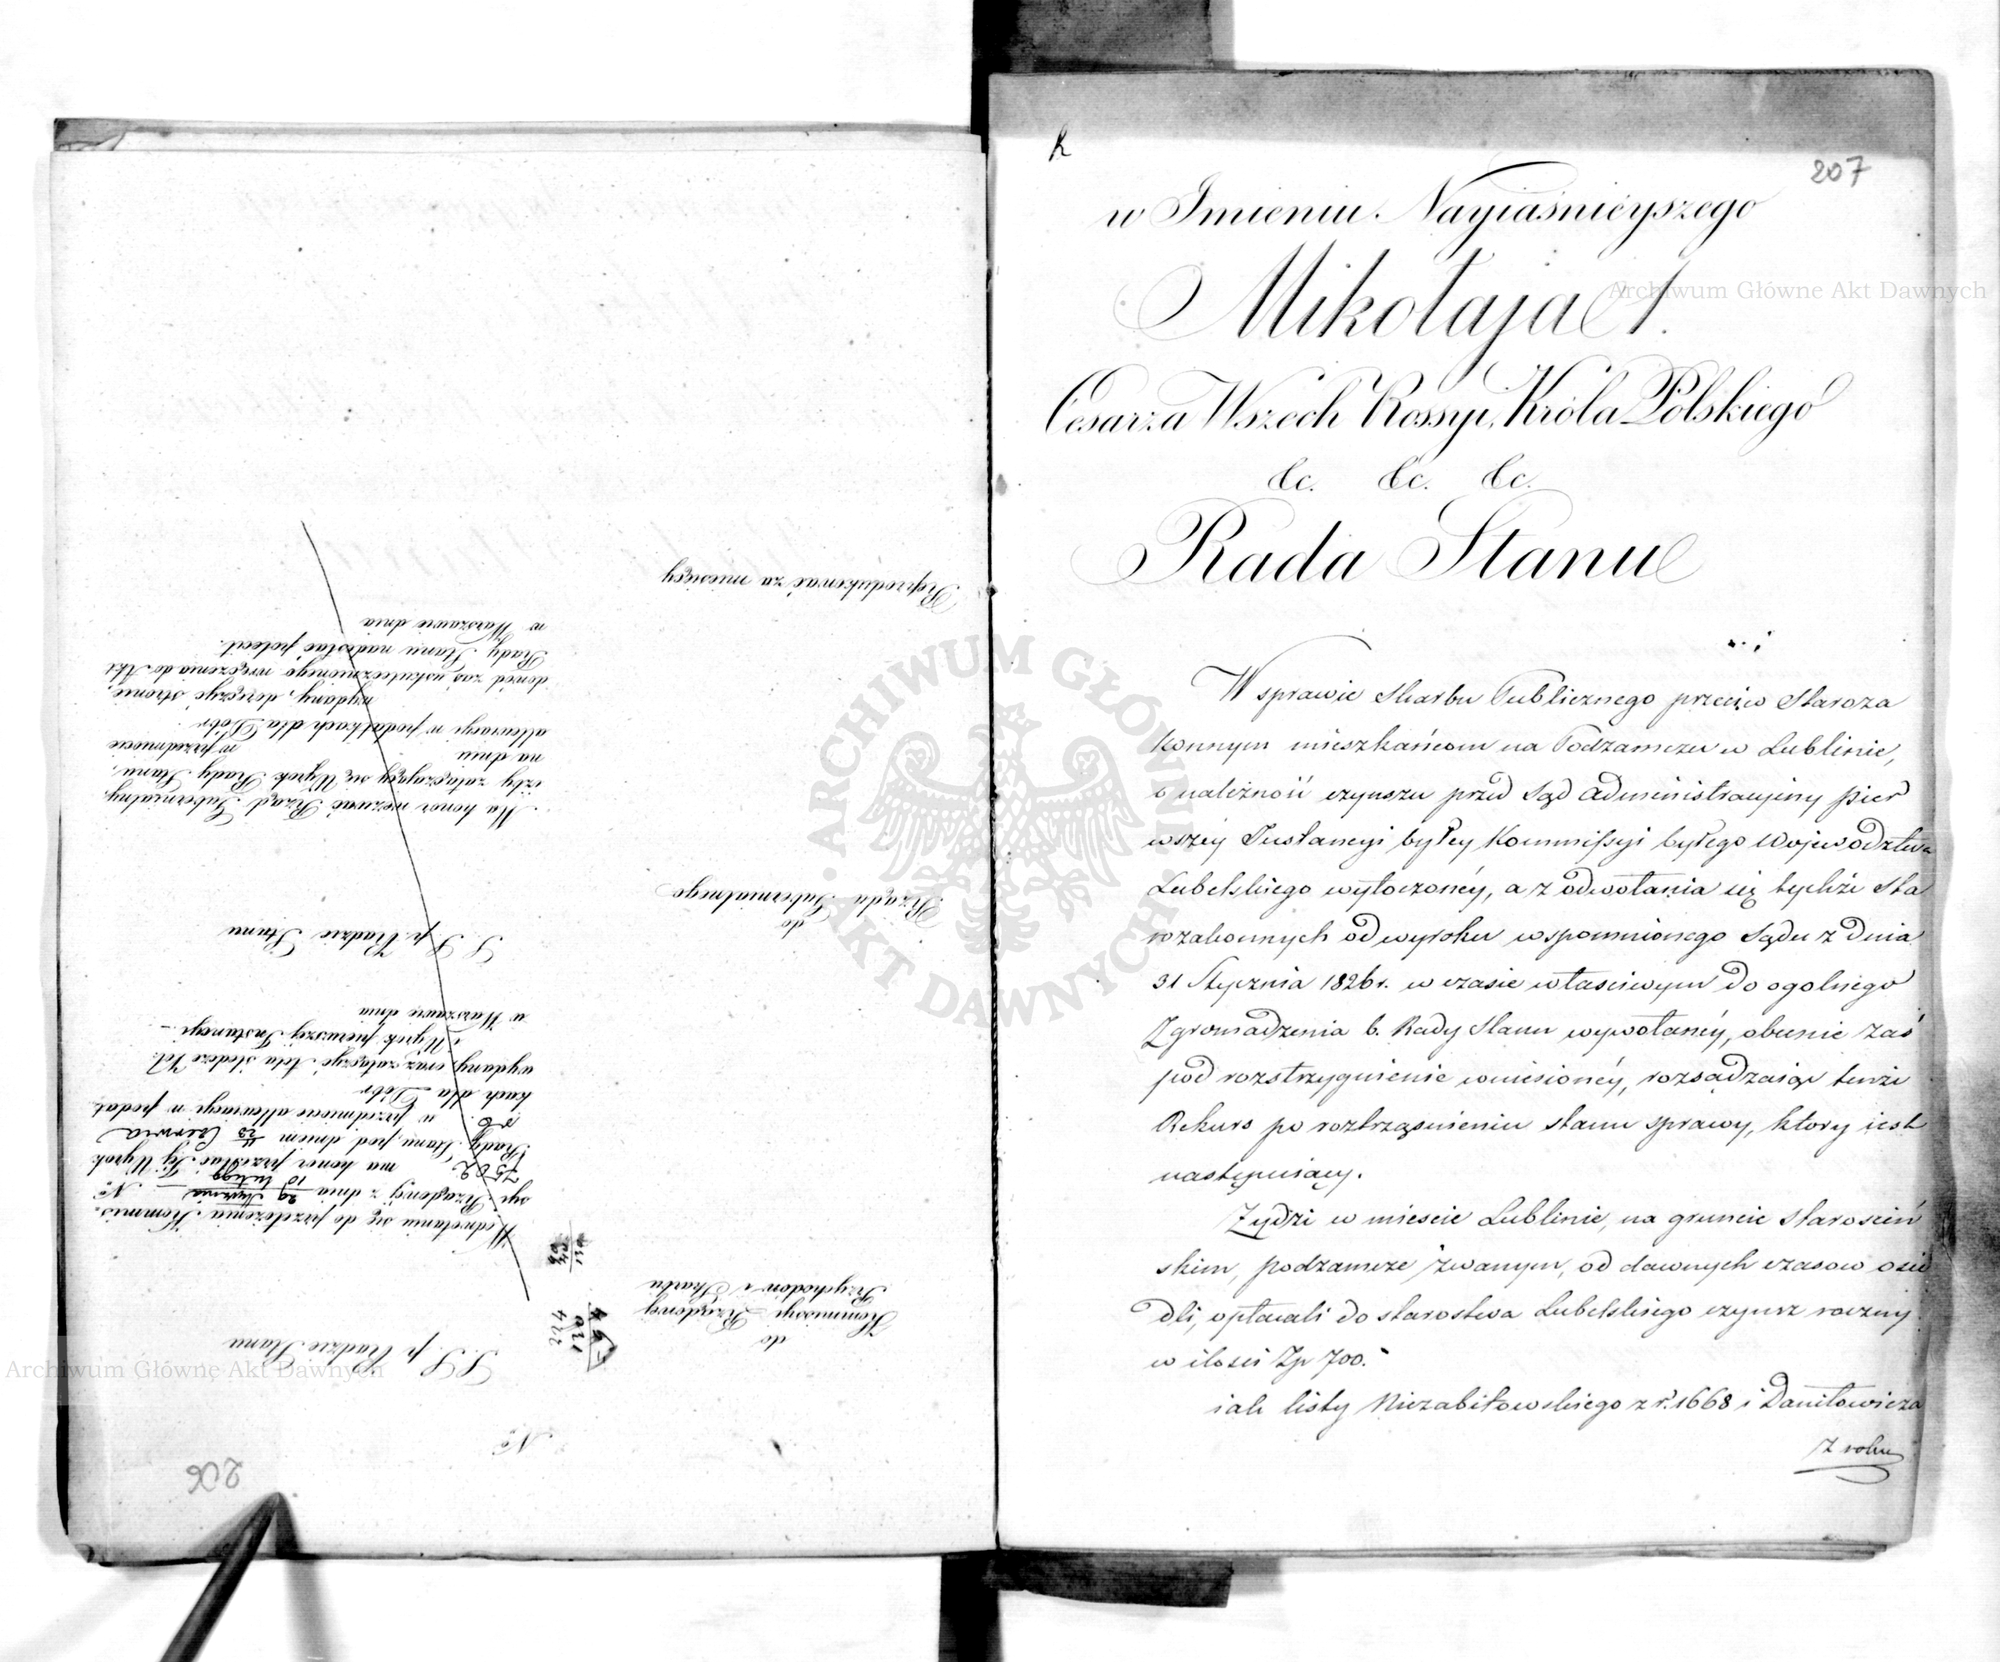 206
Nº
S. S. p. Radzie Stanu
do
Kommissyi Rządowéj
Przychodów i Skarbu
W odwołaniu się do przełożenia Kommis-
syi Rządowéj z dnia 29 Stycznia / 10 Lutego Nº
7502 ma honor przesłać Jéj Wyrok
Rady Stanu pod dniem 11/23 Czerwca
r. b. w przedmiocie allewiacyi w podat-
kach dla Dóbr
wydany, oraz załączyć Akta śledcze Vol.
i Wyrok pierwszéj Instancyi.
w Warszawie dnia
S. S. p. Radzie Stanu
do
Rządu Gubernialnego
Ma honor wezwać Rząd Gubernialny,
iżby załączający się Wyrok Rady Stanu,
na dniu w przedmiocie
allewiacyi w podatkach dla Dóbr
wydany, doręczyć stronie,
dowód zaś uskutecznionego wręczenia do Akt
Rady Stanu nadesłać polecił.
w Warszawie dnia
Reprodukować za miesięcy
207
w Imieniu Nayiaśnieyszego
Mikołaja I.
Cesarza Wszech Rossyi, Króla Polskiego
&c. &c. &c.
Rada Stanu
W sprawie Skarbu Publicznego przeciw Staroza
konnym mieszkańcom na Podzamczu w Lublinie,
o należność czynszu przed Sąd Administracyiny pier
wszey Instancyi byłey Kommissyi byłego Województwa
Lubelskiego wytoczonéy, a z odwołania się tychże Sta
rozakonnych od wyroku wspomnionego Sądu z dnia
31 Stycznia 1826 r. w czasie właściwym do ogolnego
Zgromadzenia b. Rady Stanu wywołanéy, obecnie zaś
pod rozstrzygnienie wniesionéy, rozsądzaiąc tenże
Rekurs po roztrząśnieniu stanu sprawy, ktory iest
następuiący.
Żydzi w mieście Lublinie, na gruncie Starosciń
skim, podzamcze zwanym, od dawnych czasow osie
dli, opłacali do starostwa Lubelskiego czynsz roczny
w ilości Zp 700.
iak listy Niezabitowskiego z r. 1668 i Daniłowicza
z roku